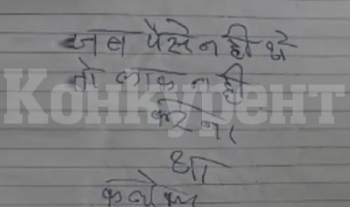 जब पैसे नही थे
तो लाक नही
करना
था
Конкурент